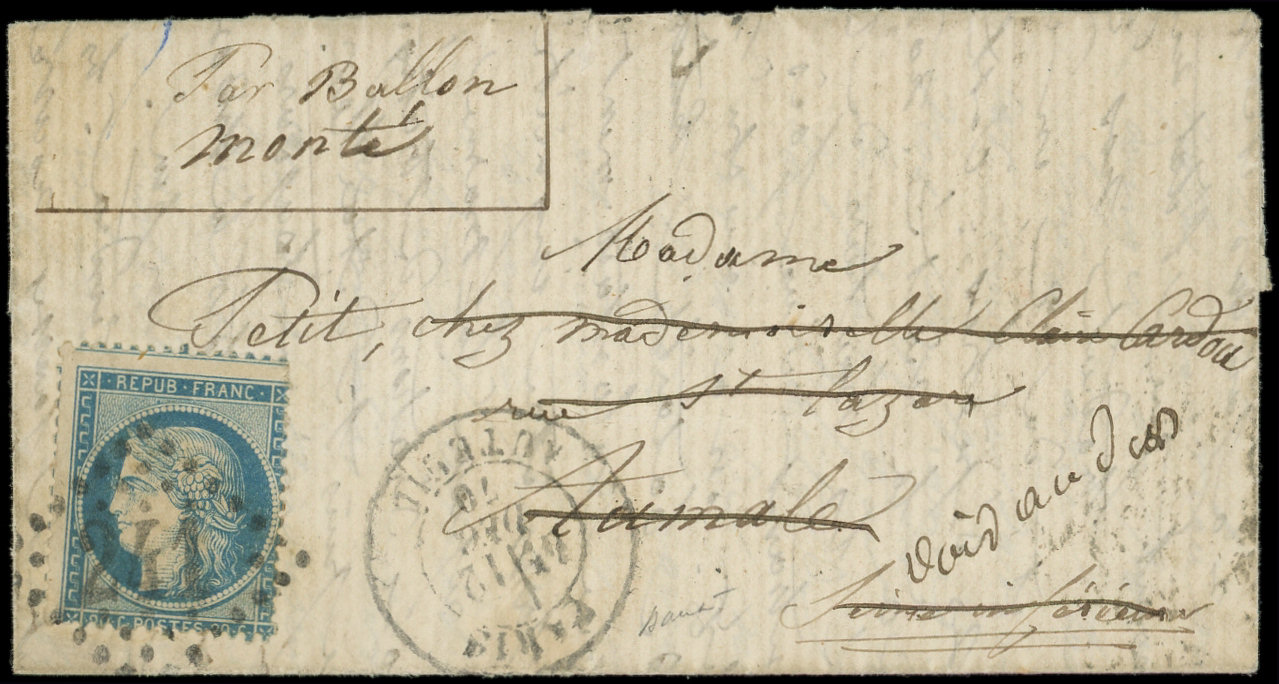 Par Ballon
monté
Madame
Petit, chez mademoiselle Clair Cardon
rue St lazare
Aumale
voir au dos
Seine inférieure
REPUB · FRANC
241
POSTES 20 C
AUTEUIL
12
DEC
70
PARIS